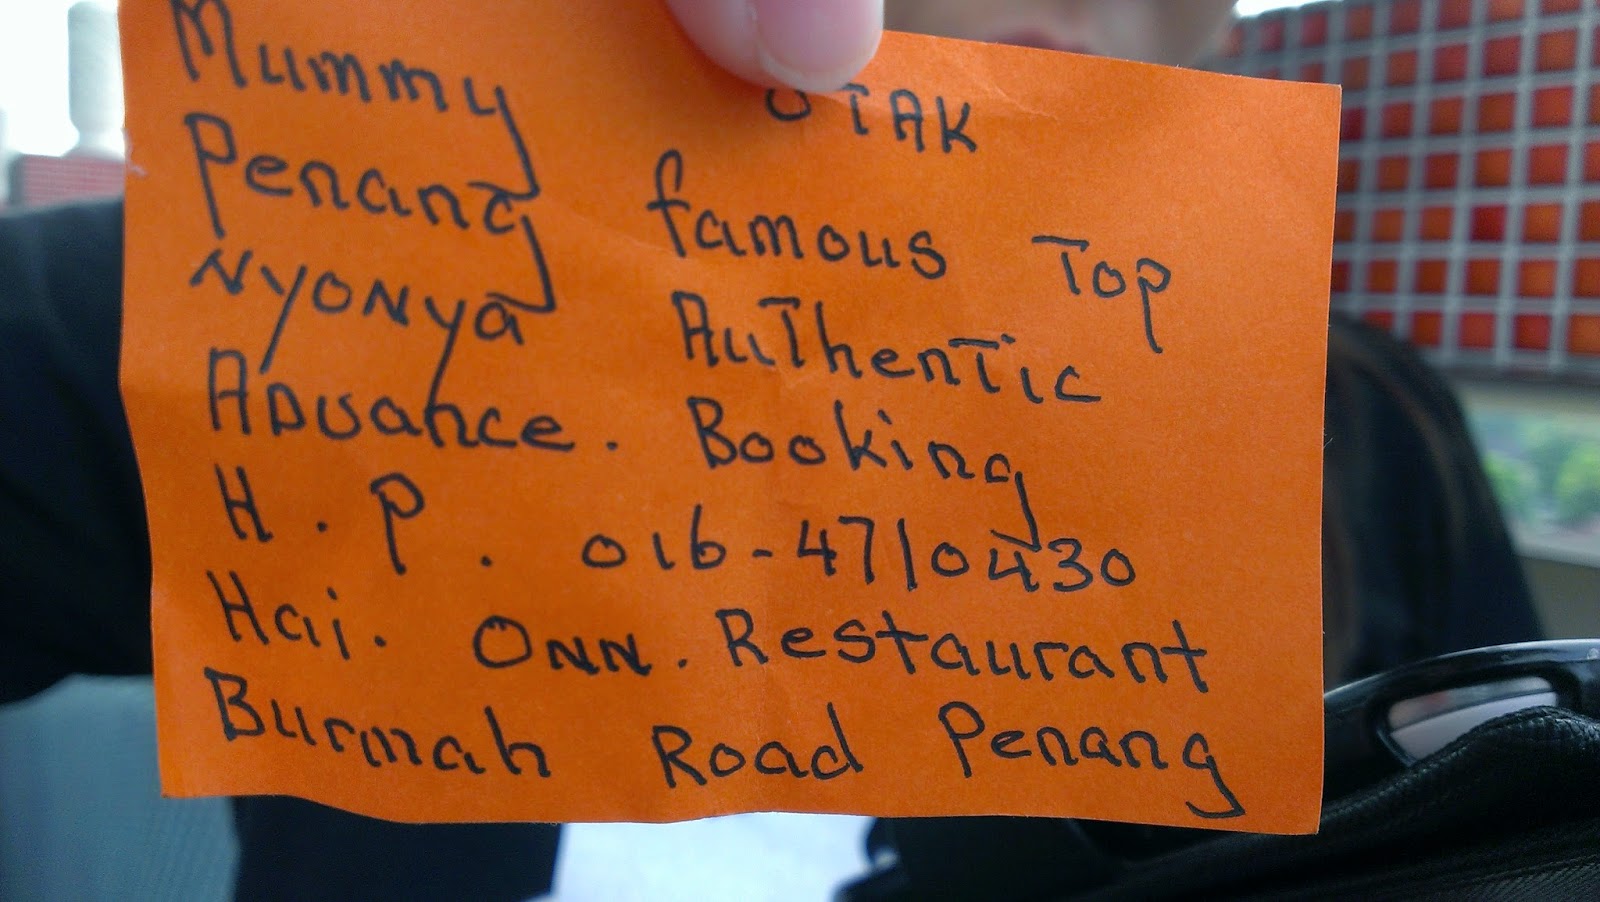 Mummy OTAK
Penang famous Top
Nyonya Authentic
Advance. Booking
H. P. 016-4710430
Hai. Onn. Restaurant
Burmah Road Penang